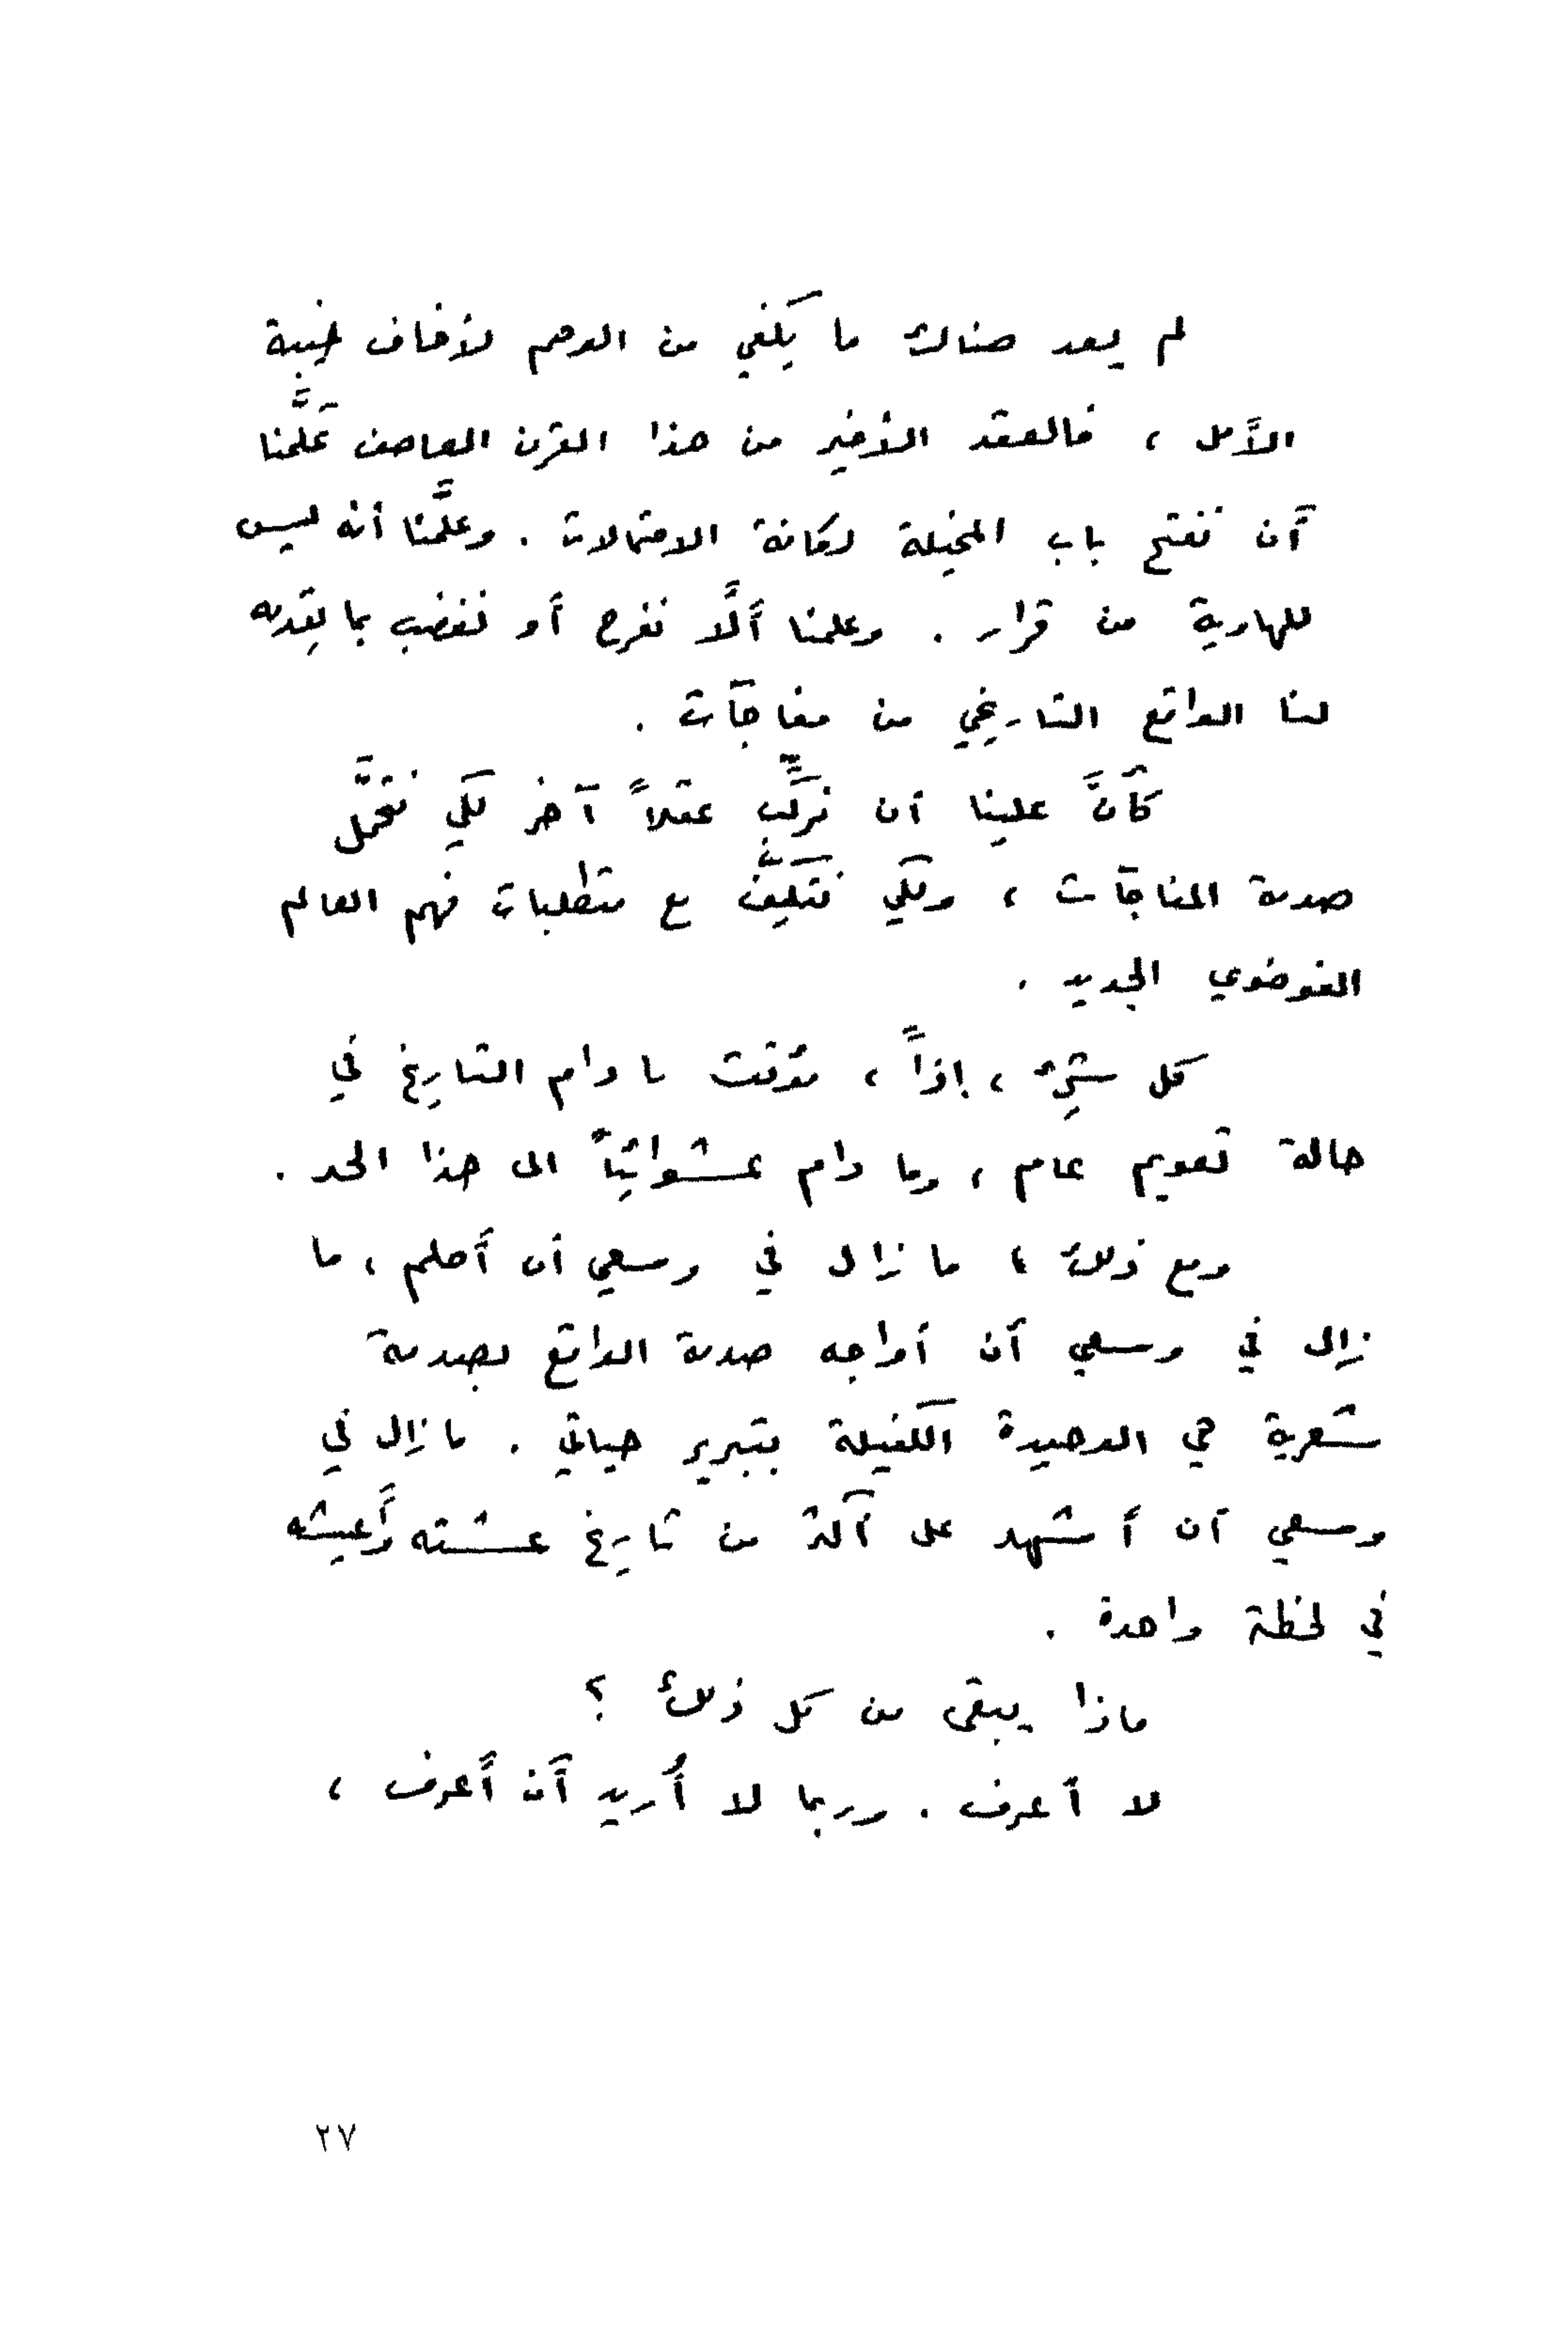 لم يعد هناك ما يكفي من الوهم لأخاف خيبة
الأمل ، فالعقد الأخير من هذا القرن العاصف عَلَّمنا
أن نفتح باب المخيلة لكافة الاحتمالات . وعلَّمنا أنه ليس
للهاوية من قرار . وعلمنا ألَّا نفرح أو نغضب بما يقدمه
لنا الواقع التاريخي من مفاجآت .
كأنَّ علينا أن نركِّب عقلاً آخر لكي نتحمَّل
صدمة المفاجآت ، ولكي نتكيَّف مع متطلبات فهم العالم
الفوضوي الجديد .
كل شيء ، إذاً ، مؤقت ما دام التاريخ في
حالة تعويم عام ، وما دام عشوائياً الى هذا الحد .
ومع ذلك ، ما زال في وسعي أن أحلم ، ما
زال في وسعي أن أواجه صدمة الواقع بصدمة
شعرية هي الوحيدة الكفيلة بتبرير حياتي . ما زال في
وسعي أن أشهد على أكثر من تاريخ عشته وأَعيشه
في لحظة واحدة .
ماذا يبقى من كل ذلك ؟
لا أعرف . وربما لا أُريد أن أَعرف ،
٢٧